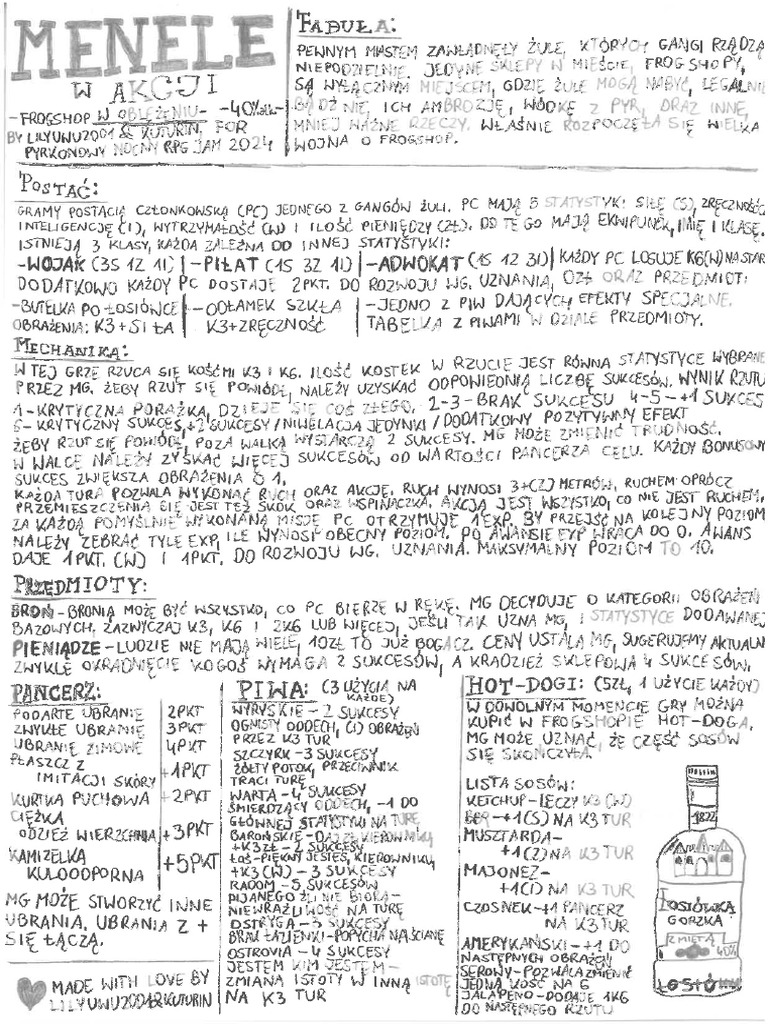 MENELE
W AKCJI
-FROGSHOP W OBLĘŻENIU- -40%alk-
BY LILYUWU2001 & KUTURIN, FOR
PYRKONOWY NOCNY RPG JAM 2024
FABUŁA:
PEWNYM MIASTEM ZAWŁADNĘŁY ŻULE, KTÓRYCH GANGI RZĄDZĄ
NIEPODZIELNIE. JEDYNE SKLEPY W MIEŚCIE, FROGSHOPY,
SĄ WYŁĄCZNYM MIEJSCEM, GDZIE ŻULE MOGĄ NABYĆ, LEGALNIE
BĄDŹ NIE, ICH AMBROZJĘ, WÓDKĘ Z PYR, ORAZ INNE,
MNIEJ WAŻNE RZECZY. WŁAŚNIE ROZPOCZĘŁA SIĘ WIELKA
WOJNA O FROGSHOP.
POSTAĆ:
GRAMY POSTACIĄ CZŁONKOWSKĄ (PC) JEDNEGO Z GANGÓW ŻULI. PC MAJĄ 5 STATYSTYK: SIŁĘ (S), ZRĘCZNOŚĆ,
INTELIGENCJĘ (I), WYTRZYMAŁOŚĆ (W) I ILOŚĆ PIENIĘDZY (ZŁ). DO TEGO MAJĄ EKWIPUNEK, IMIĘ I KLASĘ.
ISTNIEJĄ 3 KLASY, KAŻDA ZALEŻNA OD INNEJ STATYSTYKI:
-WOJAK (3S 1Z 1I) | -PIŁAT (1S 3Z 1I) | -ADWOKAT (1S 1Z 3I) | KAŻDY PC LOSUJE K6(W) NA STAR
DODATKOWO KAŻDY PC DOSTAJE 2PKT. DO ROZWOJU WG. UZNANIA, 0ZŁ ORAZ PRZEDMIOT:
-BUTELKA PO ŁOSIÓWCE | -ODŁAMEK SZKŁA | -JEDNO Z PIW DAJĄCYCH EFEKTY SPECJALNE.
OBRAŻENIA: K3+SIŁA | K3+ZRĘCZNOŚĆ | TABELKA Z PIWAMI W DZIALE PRZEDMIOTY.
MECHANIKA:
W TEJ GRZE RZUCA SIĘ KOŚĆMI K3 I K6. ILOŚĆ KOSTEK W RZUCIE JEST RÓWNA STATYSTYCE WYBRANE
PRZEZ MG. ŻEBY RZUT SIĘ POWIÓDŁ, NALEŻY UZYSKAĆ ODPOWIEDNIĄ LICZBĘ SUKCESÓW. WYNIK RZUTU
1-KRYTYCZNA PORAŻKA, DZIEJE SIĘ COŚ ZŁEGO. 2-3-BRAK SUKCESU 4-5-+1 SUKCES
6-KRYTYCZNY SUKCES, +2 SUKCESY/NIWELACJA JEDYNKI/DODATKOWY POZYTYWNY EFEKT
ŻEBY RZUT SIĘ POWIÓDŁ, POZA WALKĄ WYSTARCZĄ 2 SUKCESY. MG MOŻE ZMIENIĆ TRUDNOŚĆ.
W WALCE NALEŻY ZYSKAĆ WIĘCEJ SUKCESÓW OD WARTOŚCI PANCERZA CELU. KAŻDY BONUSOWY
SUKCES ZWIĘKSZA OBRAŻENIA O 1.
KAŻDA TURA POZWALA WYKONAĆ RUCH ORAZ AKCJĘ. RUCH WYNOSI 3+(Z) METRÓW, RUCHEM OPRÓCZ
PRZEMIESZCZENIA SIĘ JEST TEŻ SKOK ORAZ WSPINACZKA. AKCJĄ JEST WSZYSTKO, CO NIE JEST RUCHEM.
ZA KAŻDĄ POMYŚLNIE WYKONANĄ MISJĘ PC OTRZYMUJE 1EXP. BY PRZEJŚĆ NA KOLEJNY POZIOM
NALEŻY ZEBRAĆ TYLE EXP, ILE WYNOSI OBECNY POZIOM. PO AWANSIE EXP WRACA DO 0. AWANS
DAJE 1PKT. (W) I 1PKT. DO ROZWOJU WG. UZNANIA. MAKSYMALNY POZIOM TO 10.
PRZEDMIOTY:
BROŃ-BRONIĄ MOŻE BYĆ WSZYSTKO, CO PC BIERZE W RĘKĘ. MG DECYDUJE O KATEGORII OBRAŻEŃ
BAZOWYCH, ZAZWYCZAJ K3, K6 I 2K6 LUB WIĘCEJ, JEŚLI TAK UZNA MG, I STATYSTYCE DODAWANEJ
PIENIĄDZE-LUDZIE NIE MAJĄ WIELE, 10ZŁ TO JUŻ BOGACZ. CENY USTALA MG, SUGERUJEMY AKTUALN
ZWYKŁE OKRADNIĘCIE KOGOŚ WYMAGA 2 SUKCESÓW, A KRADZIEŻ SKLEPOWA 4 SUKCESÓW.
PANCERZ:
PODARTE UBRANIE 2PKT
ZWYKŁE UBRANIE 3PKT
UBRANIE ZIMOWE 4PKT
PŁASZCZ Z
IMITACJI SKÓRY +1PKT
KURTKA PUCHOWA +2PKT
CIĘŻKA
ODZIEŻ WIERZCHNIA +3PKT
KAMIZELKA
KULOOODPORNA +5PKT
MG MOŻE STWORZYĆ INNE
UBRANIA. UBRANIA Z +
SIĘ ŁĄCZĄ.
MADE WITH LOVE BY
LILYUWU2001&KUTURIN
PIWA: (3 UŻYCIA NA
KAŻDE)
WYRYSKIE-2 SUKCESY
OGNISTY ODDECH, (I) OBRAŻEŃ
PRZEZ K3 TUR
SZCZYRK-3 SUKCESY
ŻÓŁTY POTOK, PRZECIWNIK
TRACI TURĘ
WARTA-4 SUKCESY
ŚMIERDZĄCY ODDECH, -1 DO
GŁÓWNEJ STATYSTYKI NA TURĘ
BAROŃSKIE-DAJ ZŁ KIEROWNIKU
+K3ZŁ-2 SUKCESY
ŁOŚ-PIĘKNY JESTEŚ, KIEROWNIKU
+K3(W)-3 SUKCESY
RADOM-5 SUKCESÓW
PIJANEGO ŹLI NIE BIORĄ-
NIEWRAŻLIWOŚĆ NA TURĘ
OSTRYGA-3 SUKCESY
BRAK ŁAZIENKI-POPYCHA NA ŚCIANĘ
OSTROVIA-4 SUKCESY
JESTEM KIM JESTEM-
ZMIANA ISTOTY W INNĄ ISTOTĘ
NA K3 TUR
HOT-DOGI: (5ZŁ, 1 UŻYCIE KAŻDY)
W DOWOLNYM MOMENCIE GRY MOŻNA
KUPIĆ W FROGSHOPIE HOT-DOGA.
MG MOŻE UZNAĆ, ŻE CZĘŚĆ SOSÓW
SIĘ SKOŃCZYŁA.
LISTA SOSÓW:
KETCHUP-LECZY K3 (W)
BBQ-+1(S) NA K3 TUR
MUSZTARDA-
+1(Z) NA K3 TUR
MAJONEZ-
+1(I) NA K3 TUR
CZOSNEK-+1 PANCERZ
NA K3 TUR
AMERYKAŃSKI-+1 DO
NASTĘPNYCH OBRAŻEŃ
SEROWY-POZWALA ZMIENIĆ
JEDNĄ KOŚĆ NA 6
JALAPENO-DODAJE 1K6
DO NASTĘPNEGO RZUTU
1822
ŁOSIÓWKA
GORZKA
Z MIĘTĄ
40%
ŁOSIÓW